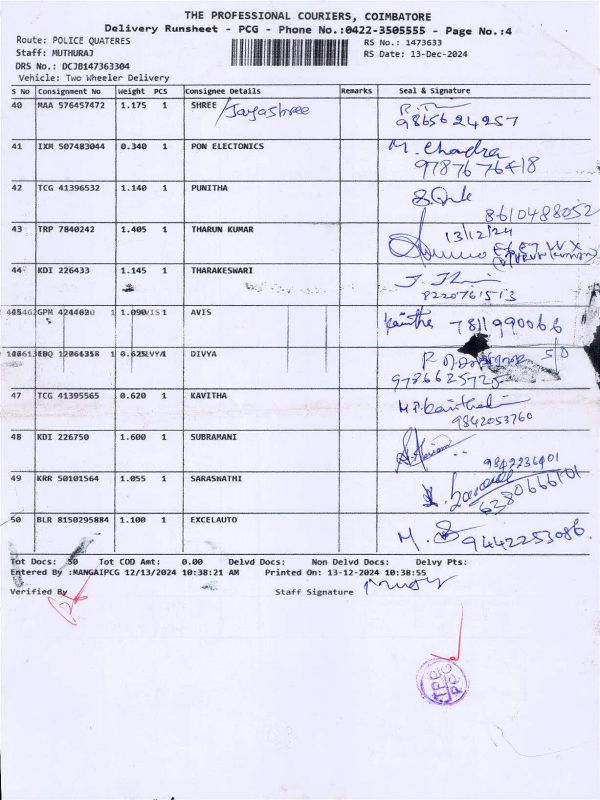 THE PROFESSIONAL COURIERS, COIMBATORE
Delivery Runsheet - PCG - Phone No.:0422-3505555 - Page No.:4
Route: POLICE QUATERES
RS No.: 1473633
Staff: MUTHURAJ
RS Date: 13-Dec-2024
DRS No.: DCJB147363304
Vehicle: Two Wheeler Delivery
S No Consignment No Weight PCS Consignee Details Remarks Seal & Signature
40 MAA 576457472 1.175 1 SHREE /Jayashree
9865624257
41 IXM 507483044 0.340 1 PON ELECTONICS M. Chandra
9787676418
42 TCG 41396532 1.140 1 PUNITHA
8610488052
43 TRP 7840242 1.405 1 THARUN KUMAR 13/12/24
44 KDI 226433 1.145 1 THARAKESWARI
8220761513
GPM 1.090 1 AVIS 7811990066
DIVYA
9786625725
47 TCG 41395565 0.620 1 KAVITHA M.P.Kavitha
9842053760
48 KDI 226750 1.600 1 SUBRAMANI
9842236901
49 KRR 50101564 1.055 1 SARASWATHI
6380666101
50 BLR 8150295884 1.100 1 EXCELAUTO M. 9442253086.
Tot Docs: 50 Tot COD Amt: 0.00 Delvd Docs: Non Delvd Docs: Delvy Pts:
Entered By :MANGAIPCG 12/13/2024 10:38:21 AM Printed On: 13-12-2024 10:38:55
Verified By Staff Signature
TPC
PCG